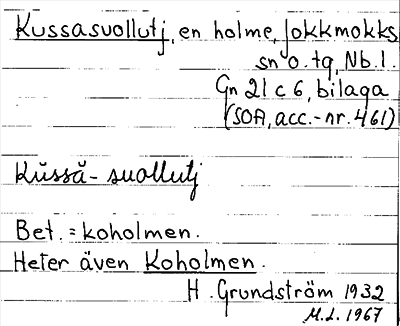 Kussasuollutj, en holme, Jokkmokks
sn o. tg, Nb.l.
Gn 21 c 6, bilaga
(SOA, acc.-nr. 461)
Kŭssă-suollutj
Bet. = koholmen.
Heter även Koholmen.
H. Grundström 1932
M.L. 1967